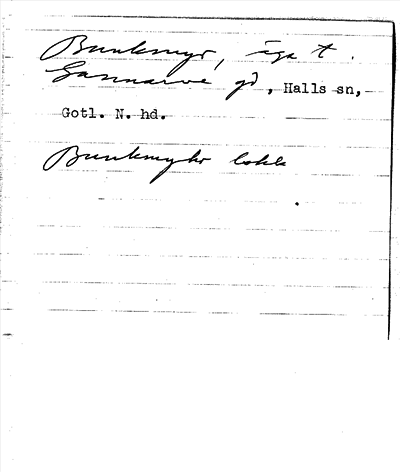 Bunkmyr, äga t.
Gannarve gd, Halls sn,
Gotl. N. hd.
Bunkmyhr lokk